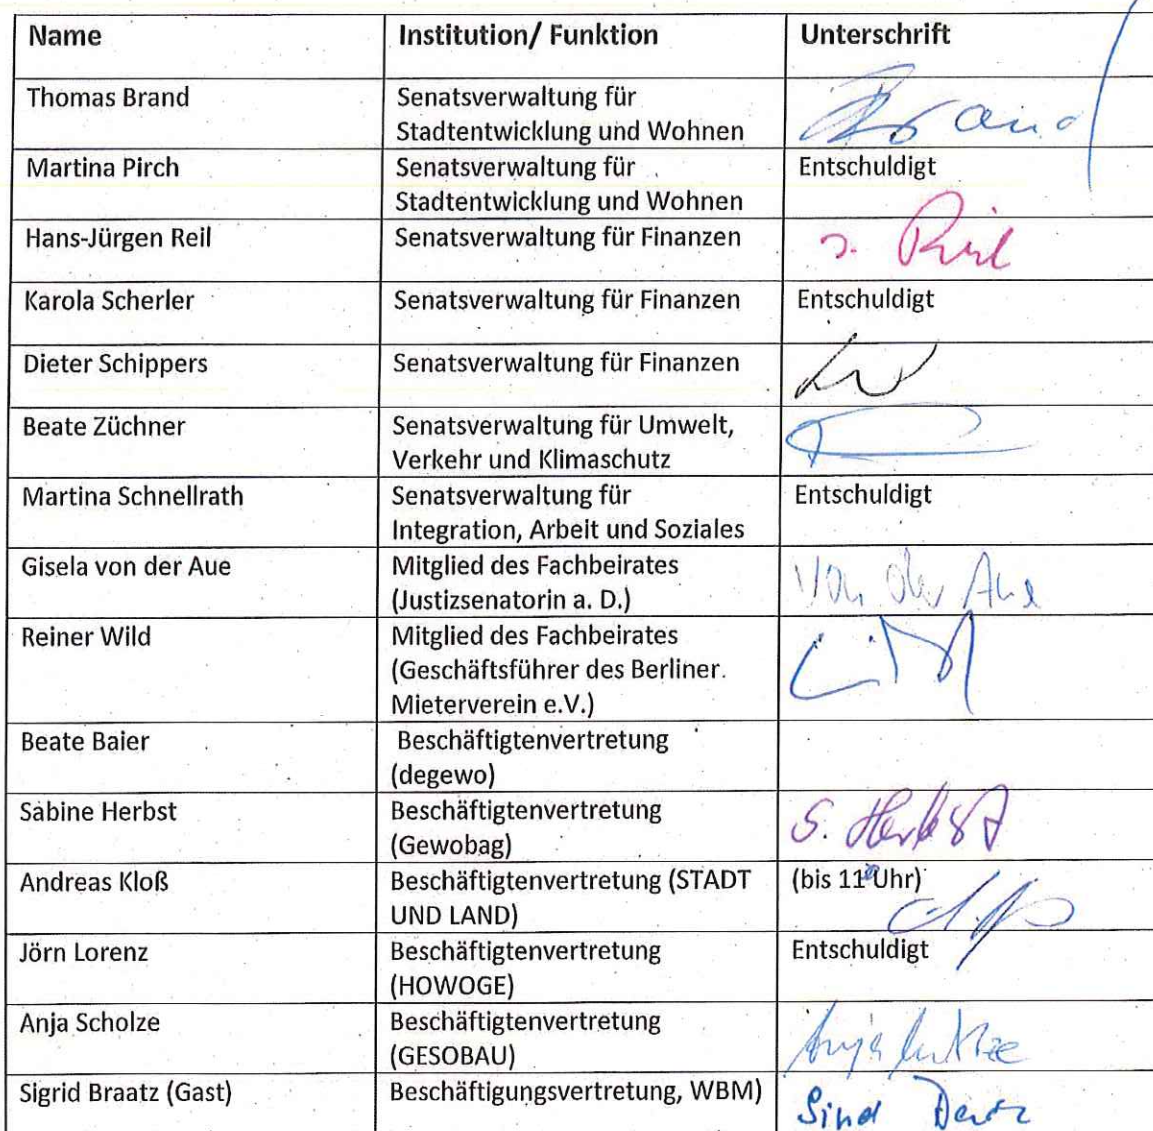 Name Institution/ Funktion Unterschrift
Thomas Brand Senatsverwaltung für
Stadtentwicklung und Wohnen Brand
Martina Pirch Senatsverwaltung für Entschuldigt
Stadtentwicklung und Wohnen
Hans-Jürgen Reil Senatsverwaltung für Finanzen Reil
Karola Scherler Senatsverwaltung für Finanzen Entschuldigt
Dieter Schippers Senatsverwaltung für Finanzen
Beate Züchner Senatsverwaltung für Umwelt,
Verkehr und Klimaschutz
Martina Schnellrath Senatsverwaltung für Entschuldigt
Integration, Arbeit und Soziales
Gisela von der Aue Mitglied des Fachbeirates
(Justizsenatorin a. D.) Von der Aue
Reiner Wild Mitglied des Fachbeirates
(Geschäftsführer des Berliner
Mieterverein e.V.)
Beate Baier Beschäftigtenvertretung
(degewo)
Sabine Herbst Beschäftigtenvertretung S. Herbst
(Gewobag)
Andreas Kloß Beschäftigtenvertretung (STADT (bis 11 Uhr)
UND LAND)
Jörn Lorenz Beschäftigtenvertretung Entschuldigt
(HOWOGE)
Anja Scholze Beschäftigtenvertretung
(GESOBAU) Anja
Sigrid Braatz (Gast) Beschäftigungsvertretung, WBM)